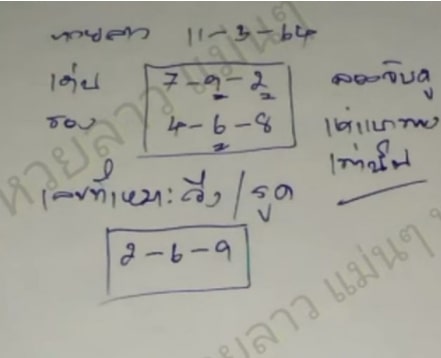 หวยลาว 11-3-64
เด่น 7-9-2 ลองจับดู
รอง 4-6-8 เด่นแนวทาง
เท่านั้น
เลขที่เหมาะวิ่ง/รูด
2-6-9
หวยลาว แม่นๆ
หวยลาว แม่นๆ